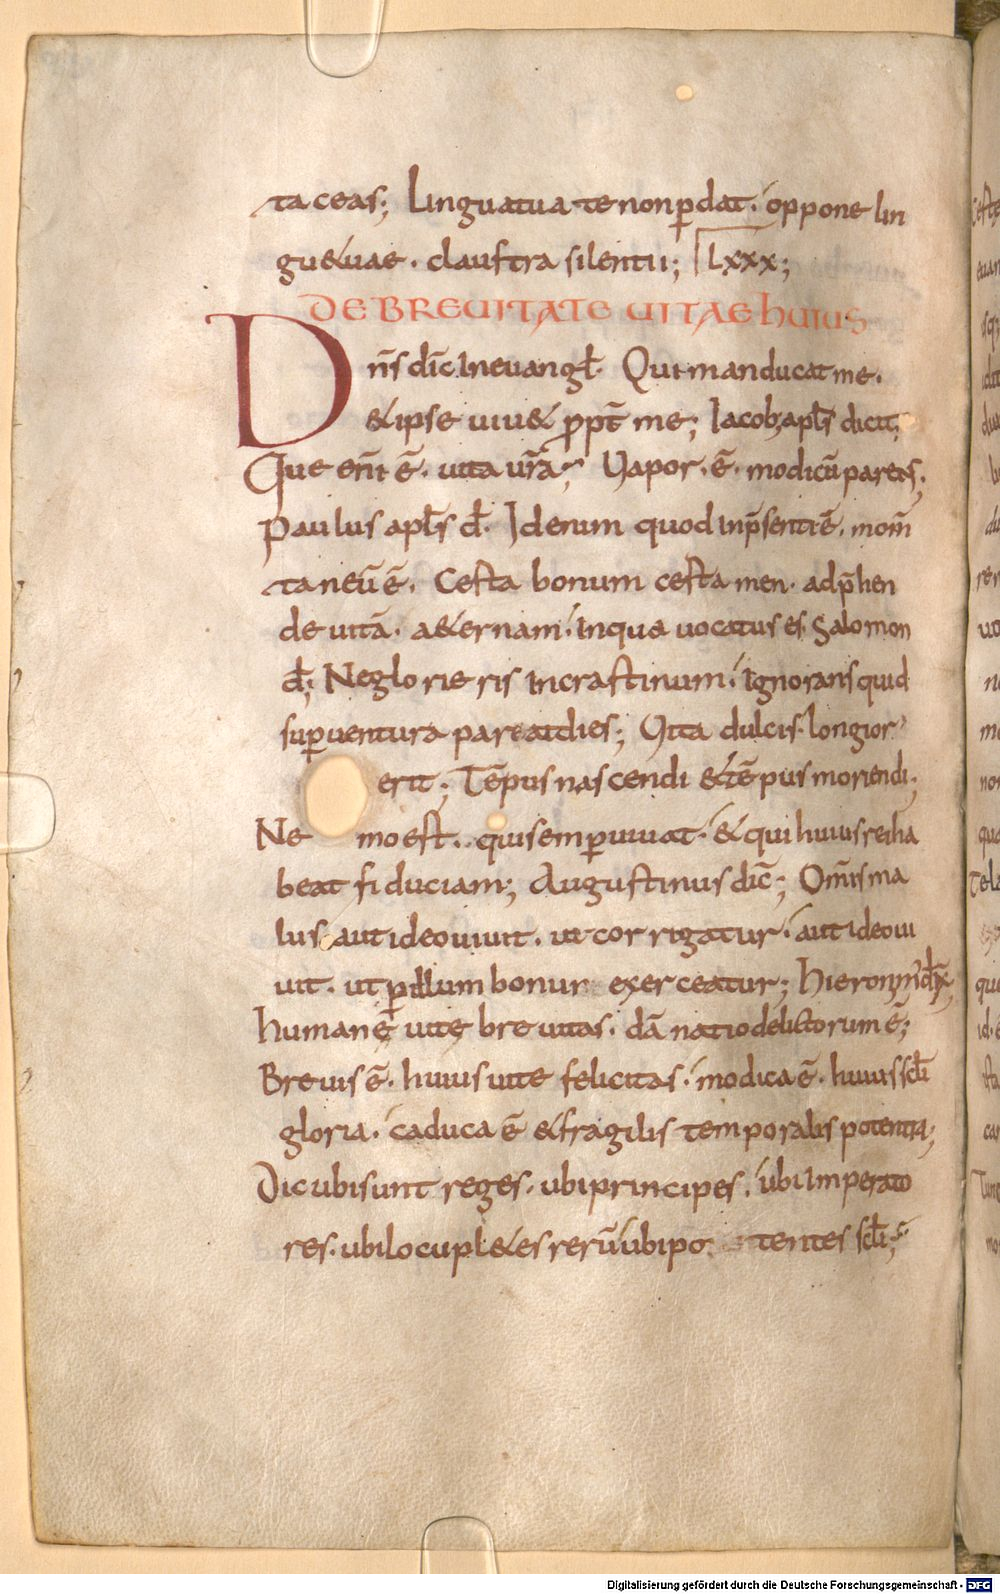 taceas; Lingua tua te non p̄dat. oppone lin
gu&uae. claustra silentii; LXXX;
DE BREUITATE UITAE HUIUS
Dn̄s dic̄ In euangl̄. Qui manducat me.
& ipse uiu& ꝓpt̄ me; Iacob; apl̄s dicit;
Que eni̅ ē. uita ur̄a; Uapor. ē. modicū parens;
Paulus apl̄s d̄. Id enim quod In p̄senti ē. mom̄
taneū ē. Certa bonum certamen. adp̄hen
de uitā. a&ernam. In qua uocatus es. Salomon
d̄; Ne glorieris In crastinum. Ignorans quid
sup̄uentura pareat dies; Uita dulcis. longior
erit; Tēpus nascendi & tēpus moriendi;
Ne mo est. qui semp̄ uiuat. & qui huius rei ha
beat fiduciam; Augustinus dic̄; Om̄is ma
lus aut ideo uiuit. ut corrigatur. aut ideo uı
uit. ut p̄ illum bonus exerceatur; Hieronim̄ dix̄;
humanę uitę breuitas. dānatio delictorum ē;
Breuis ē. huius uite felicitas. modica ē. huius scl̄i
gloria. caduca ē & fragilis temporalis potentia;
Dic ubi sunt reges. ubi principes. ubi Imperato
res. ubi locupl&es rerū ubi potentes scl̄i;
Digitalisierung gefördert durch die Deutsche Forschungsgemeinschaft - DFG